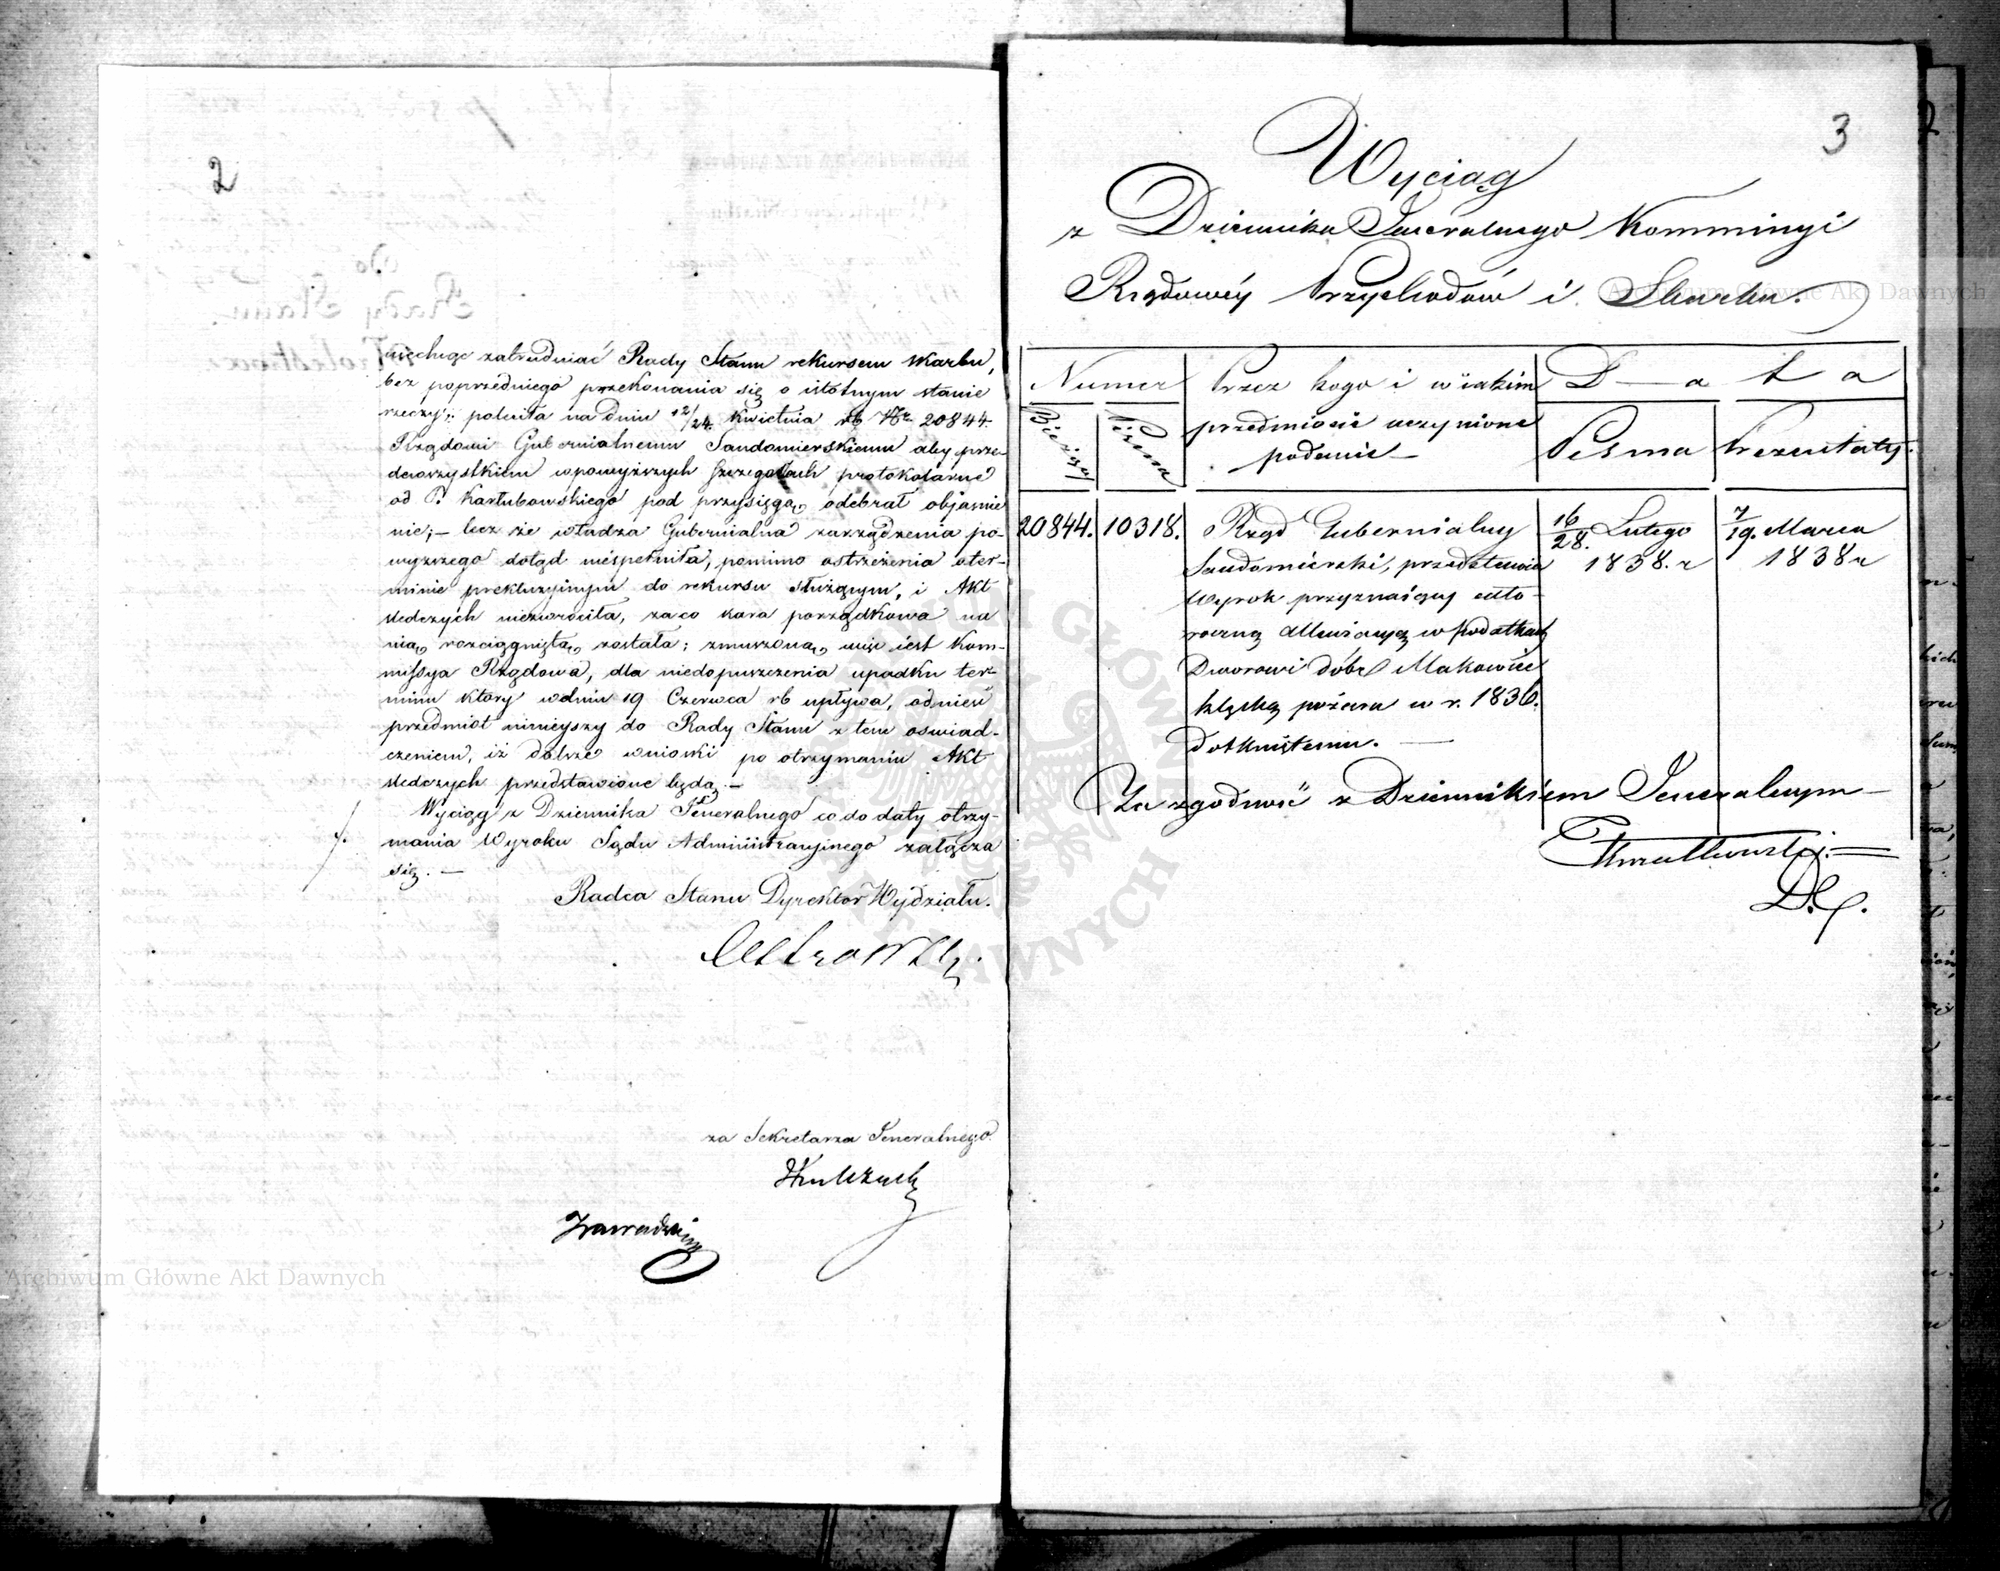 2
niechcąc zatrudniać Rady Stanu rekursem Skarbu,
bez poprzedniego przekonania się o istotnym stanie
rzeczy; poleciła na dniu 12/24 Kwietnia rb Nr 20844.
Rządowi Gubernialnemu Sandomierskiemu aby prze-
dewszystkiem w powyższych szczegółach protokolarne
od P. Karłubowskiego pod przysięgą odebrał objaśnie
nie;– lecz że władza Gubernialna zarządzenia po-
wyższego dotąd niespełniła, pomimo ostrzeżenia o ter-
minie prekluzyjnym do rekursu służącym, i Akt
śledczych niezwróciła, za co kara porządkowa na
nią rozciągniętą została; zmuszoną więc iest Kom-
missya Rządowa, dla niedopuszczenia upadku ter-
minu który w dniu 19 Czerwca rb upływa, odnieść
przedmiot ninieyszy do Rady Stanu z tem oświad-
czeniem, iż dalsze wnioski po otrzymaniu Akt
śledczych przedstawione będą.–
Wyciąg z Dziennika Generalnego co do daty otrzy-
mania Wyroku Sądu Administracyjnego załącza
się.–
Radca Stanu Dyrektor Wydziału.
za Sekretarza Generalnego
Zawadzki
3
Wyciąg
z Dziennika Generalnego Kommissyi
Rządowéy Przychodów i Skarbu.
Numer
Przez kogo i w iakim
D–a t a
Bieżący
Pisma
przedmiocie uczynione
podanie–
Pisma
Prezentaty.
20844.
10318.
Rząd Gubernialny
16/28. Lutego
7/19. Marca
Sandomierski, przedstawia
1838. r
1838 r
Wyrok przyznaiący cało-
roczną allewiacyą w podatkach
Dworowi dóbr Makowiec
klęską pożaru w r. 1836.
dotkniętemu.–
Za zgodność z Dziennikiem Generalnym–
Archiwum Główne Akt Dawnych
Archiwum Główne Akt Dawnych